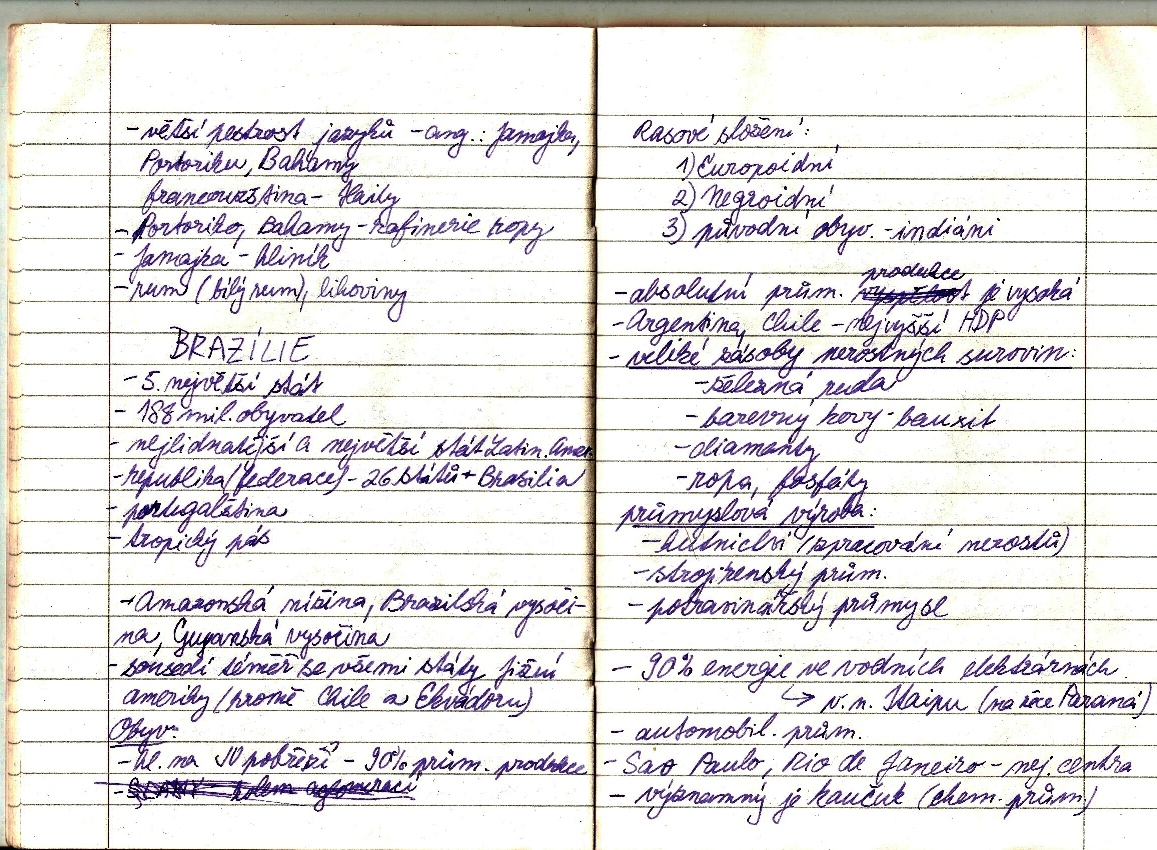 - větší pestrost jazyků - ang.: Jamajka,
Portoriko, Bahamy
francouzština - Haity
- Portoriko, Bahamy - rafinerie ropy
- Jamajka - hliník
- rum (bílý rum), lihoviny
BRAZÍLIE
- 5. největší stát
- 188 mil. obyvatel
- nejlidnatější a největší stát Latin. Amer.
- republika (federace) - 26 států + Brasilia
- portugalština
- tropický pás
- Amazonská nížina, Brazilská vysoči-
na, Guyanská vysočina
- sousedí téměř se všemi státy jižní
ameriky (kromě Chile a Ekvádoru)
Obyv.
- hl. na JV pobřeží - 90% prům. produkce
- kolem aglomerací
Rasové složení:
1) Europoidní
2) Negroidní
3) původní obyv. - indiáni
produkce
- absolutní prům. vyspělost je vysoká
- Argentina, Chile - nejvyšší HDP
- veliké zásoby nerostných surovin:
- železná ruda
- barevný kovy - bauxit
- diamanty
- ropa, fosfáty
průmyslová výroba:
- hutnictví (zpracování nerostů)
- strojírenský prům.
- potravinářský průmysl
- 90% energie ve vodních elektrárnách
↳ v.n. Itaipu (na řece Paraná)
- automobil. prům.
- Sao Paulo, Rio de Janeiro - nej. centra
- významný je kaučuk (chem. prům.)